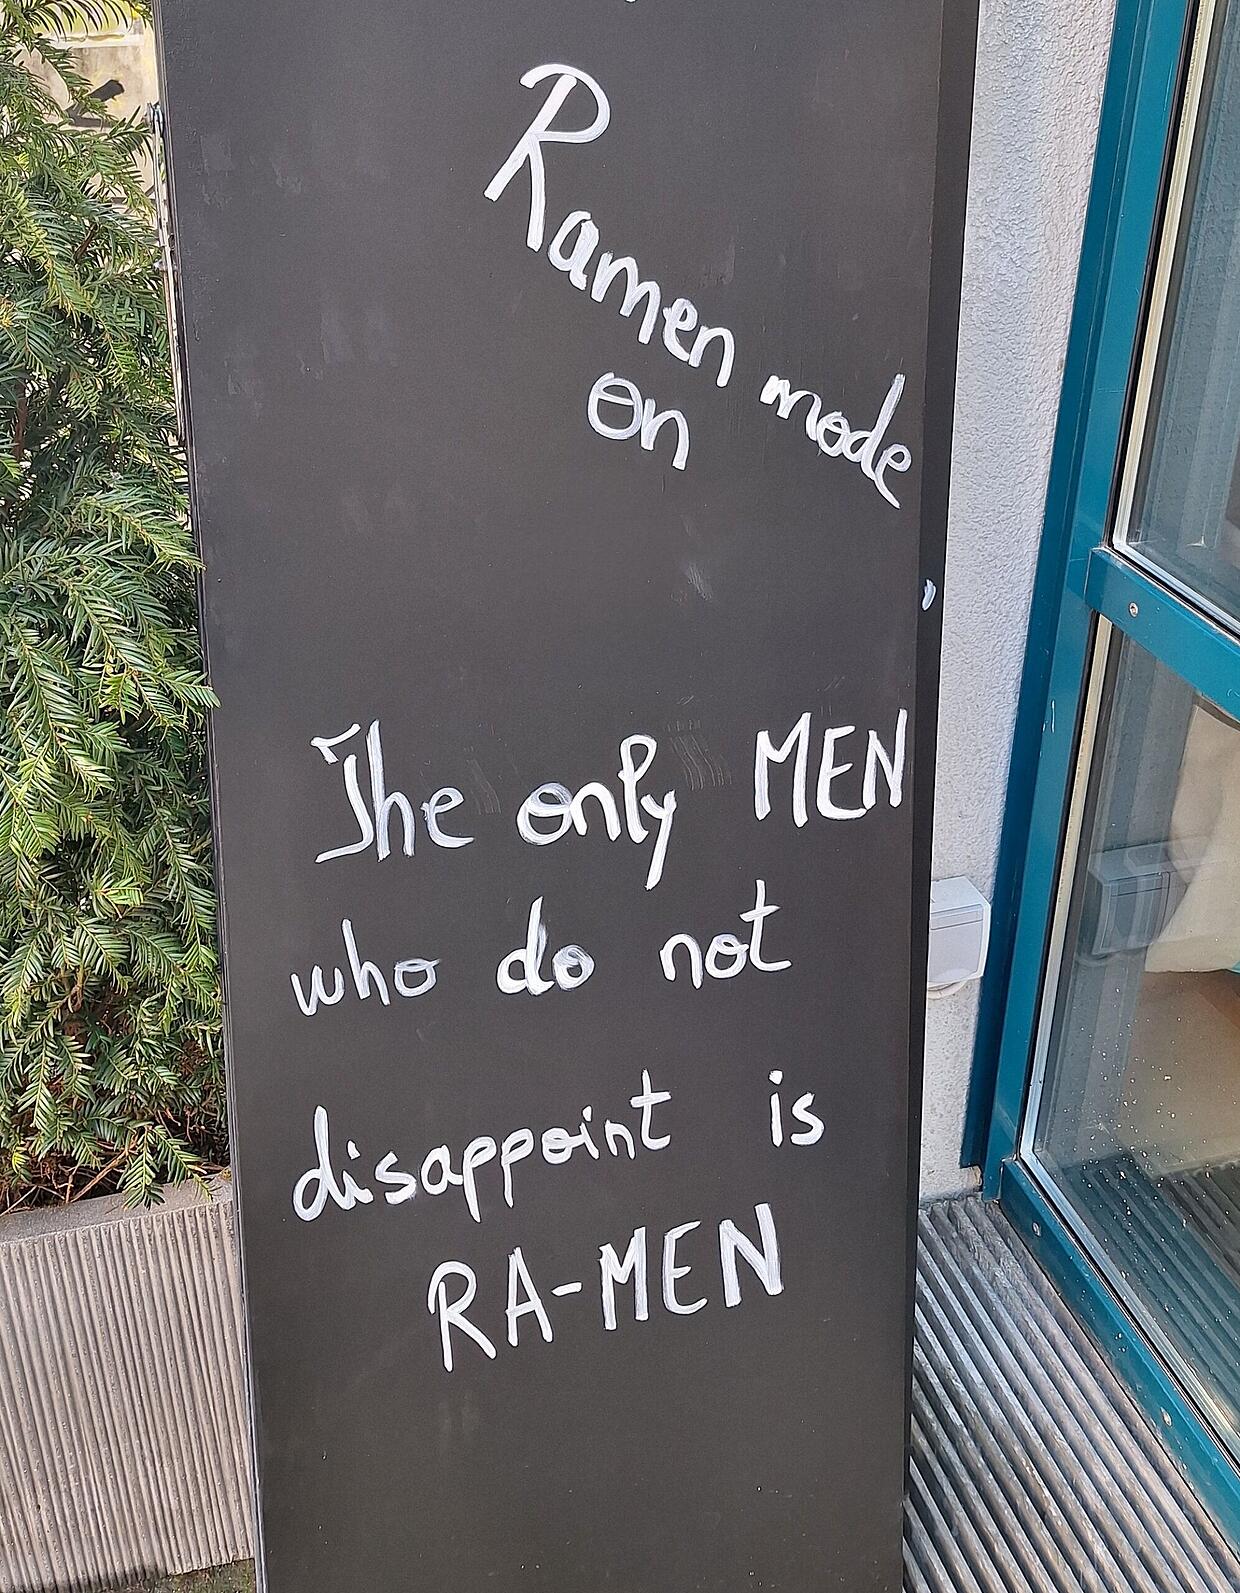 Ramen mode
on
The only MEN
who do not
disappoint is
RA-MEN